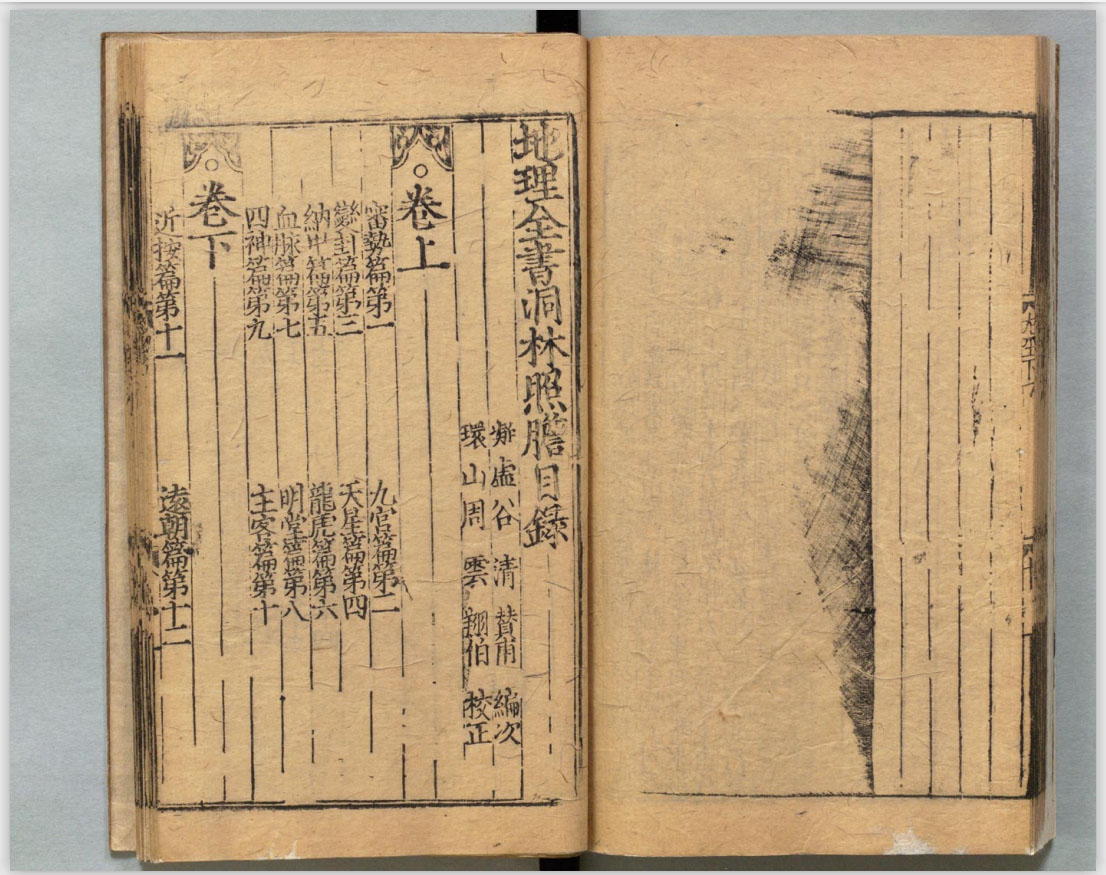 地理全書洞林照膽目錄
虛谷 清 贊甫 編次
環山周 雲 伯 校正
○卷上
審勢篇第一 九宮篇第二
變卦篇第三 天星篇第四
納甲篇第五 龍虎篇第六
血脉篇第七 明堂篇第八
四神篇第九 主客篇第十
○卷下
近按篇第十一 逺朝篇第十二